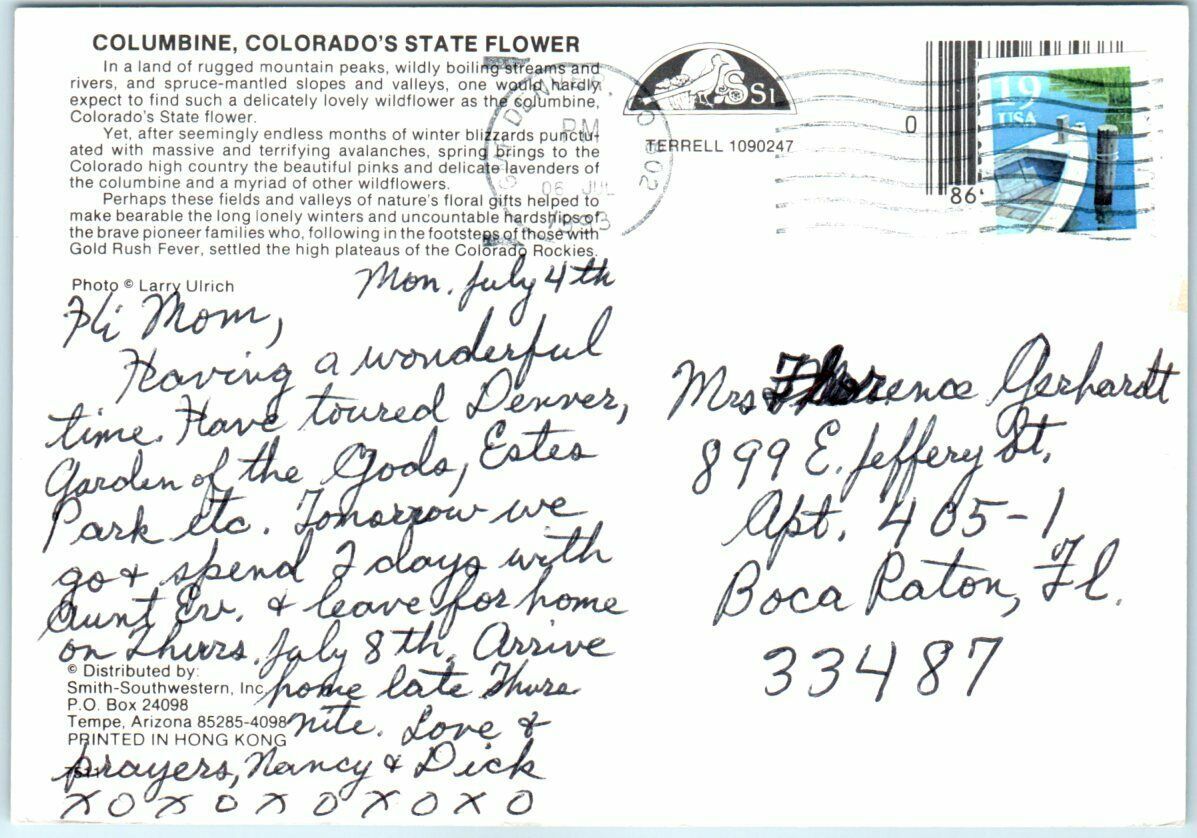 COLUMBINE, COLORADO'S STATE FLOWER
In a land of rugged mountain peaks, wildly boiling streams and
rivers, and spruce-mantled slopes and valleys, one would hardly
expect to find such a delicately lovely wildflower as the columbine,
Colorado's State flower.
Yet, after seemingly endless months of winter blizzards punctu-
ated with massive and terrifying avalanches, spring brings to the
Colorado high country the beautiful pinks and delicate lavenders of
the columbine and a myriad of other wildflowers.
Perhaps these fields and valleys of nature's floral gifts helped to
make bearable the long lonely winters and uncountable hardships of
the brave pioneer families who, following in the footsteps of those with
Gold Rush Fever, settled the high plateaus of the Colorado Rockies.
Photo © Larry Ulrich
PM
06 JUL
1993
802
SSI
TERRELL 1090247
0
86
19
USA
Mon. July 4th
Hi Mom,
Having a wonderful
time. Have toured Denver,
Garden of the Gods, Estes
Park etc. Tomorrow we
go & spend 2 days with
Aunt Ev. & leave for home
on Thurs. July 8th. Arrive
home late Thurs
nite. Love &
prayers, Nancy & Dick
XOXOXOXOXO
© Distributed by:
Smith-Southwestern, Inc.
P.O. Box 24098
Tempe, Arizona 85285-4098
PRINTED IN HONG KONG
Mrs Florence Gerhardt
899 E. Jeffery St.
Apt. 405-1
Boca Raton, Fl.
33487